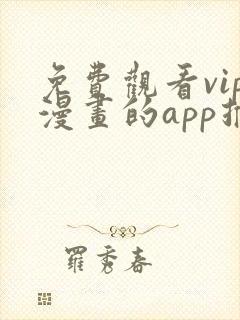 免費觀看vip
漫畫的app推
羅秀春